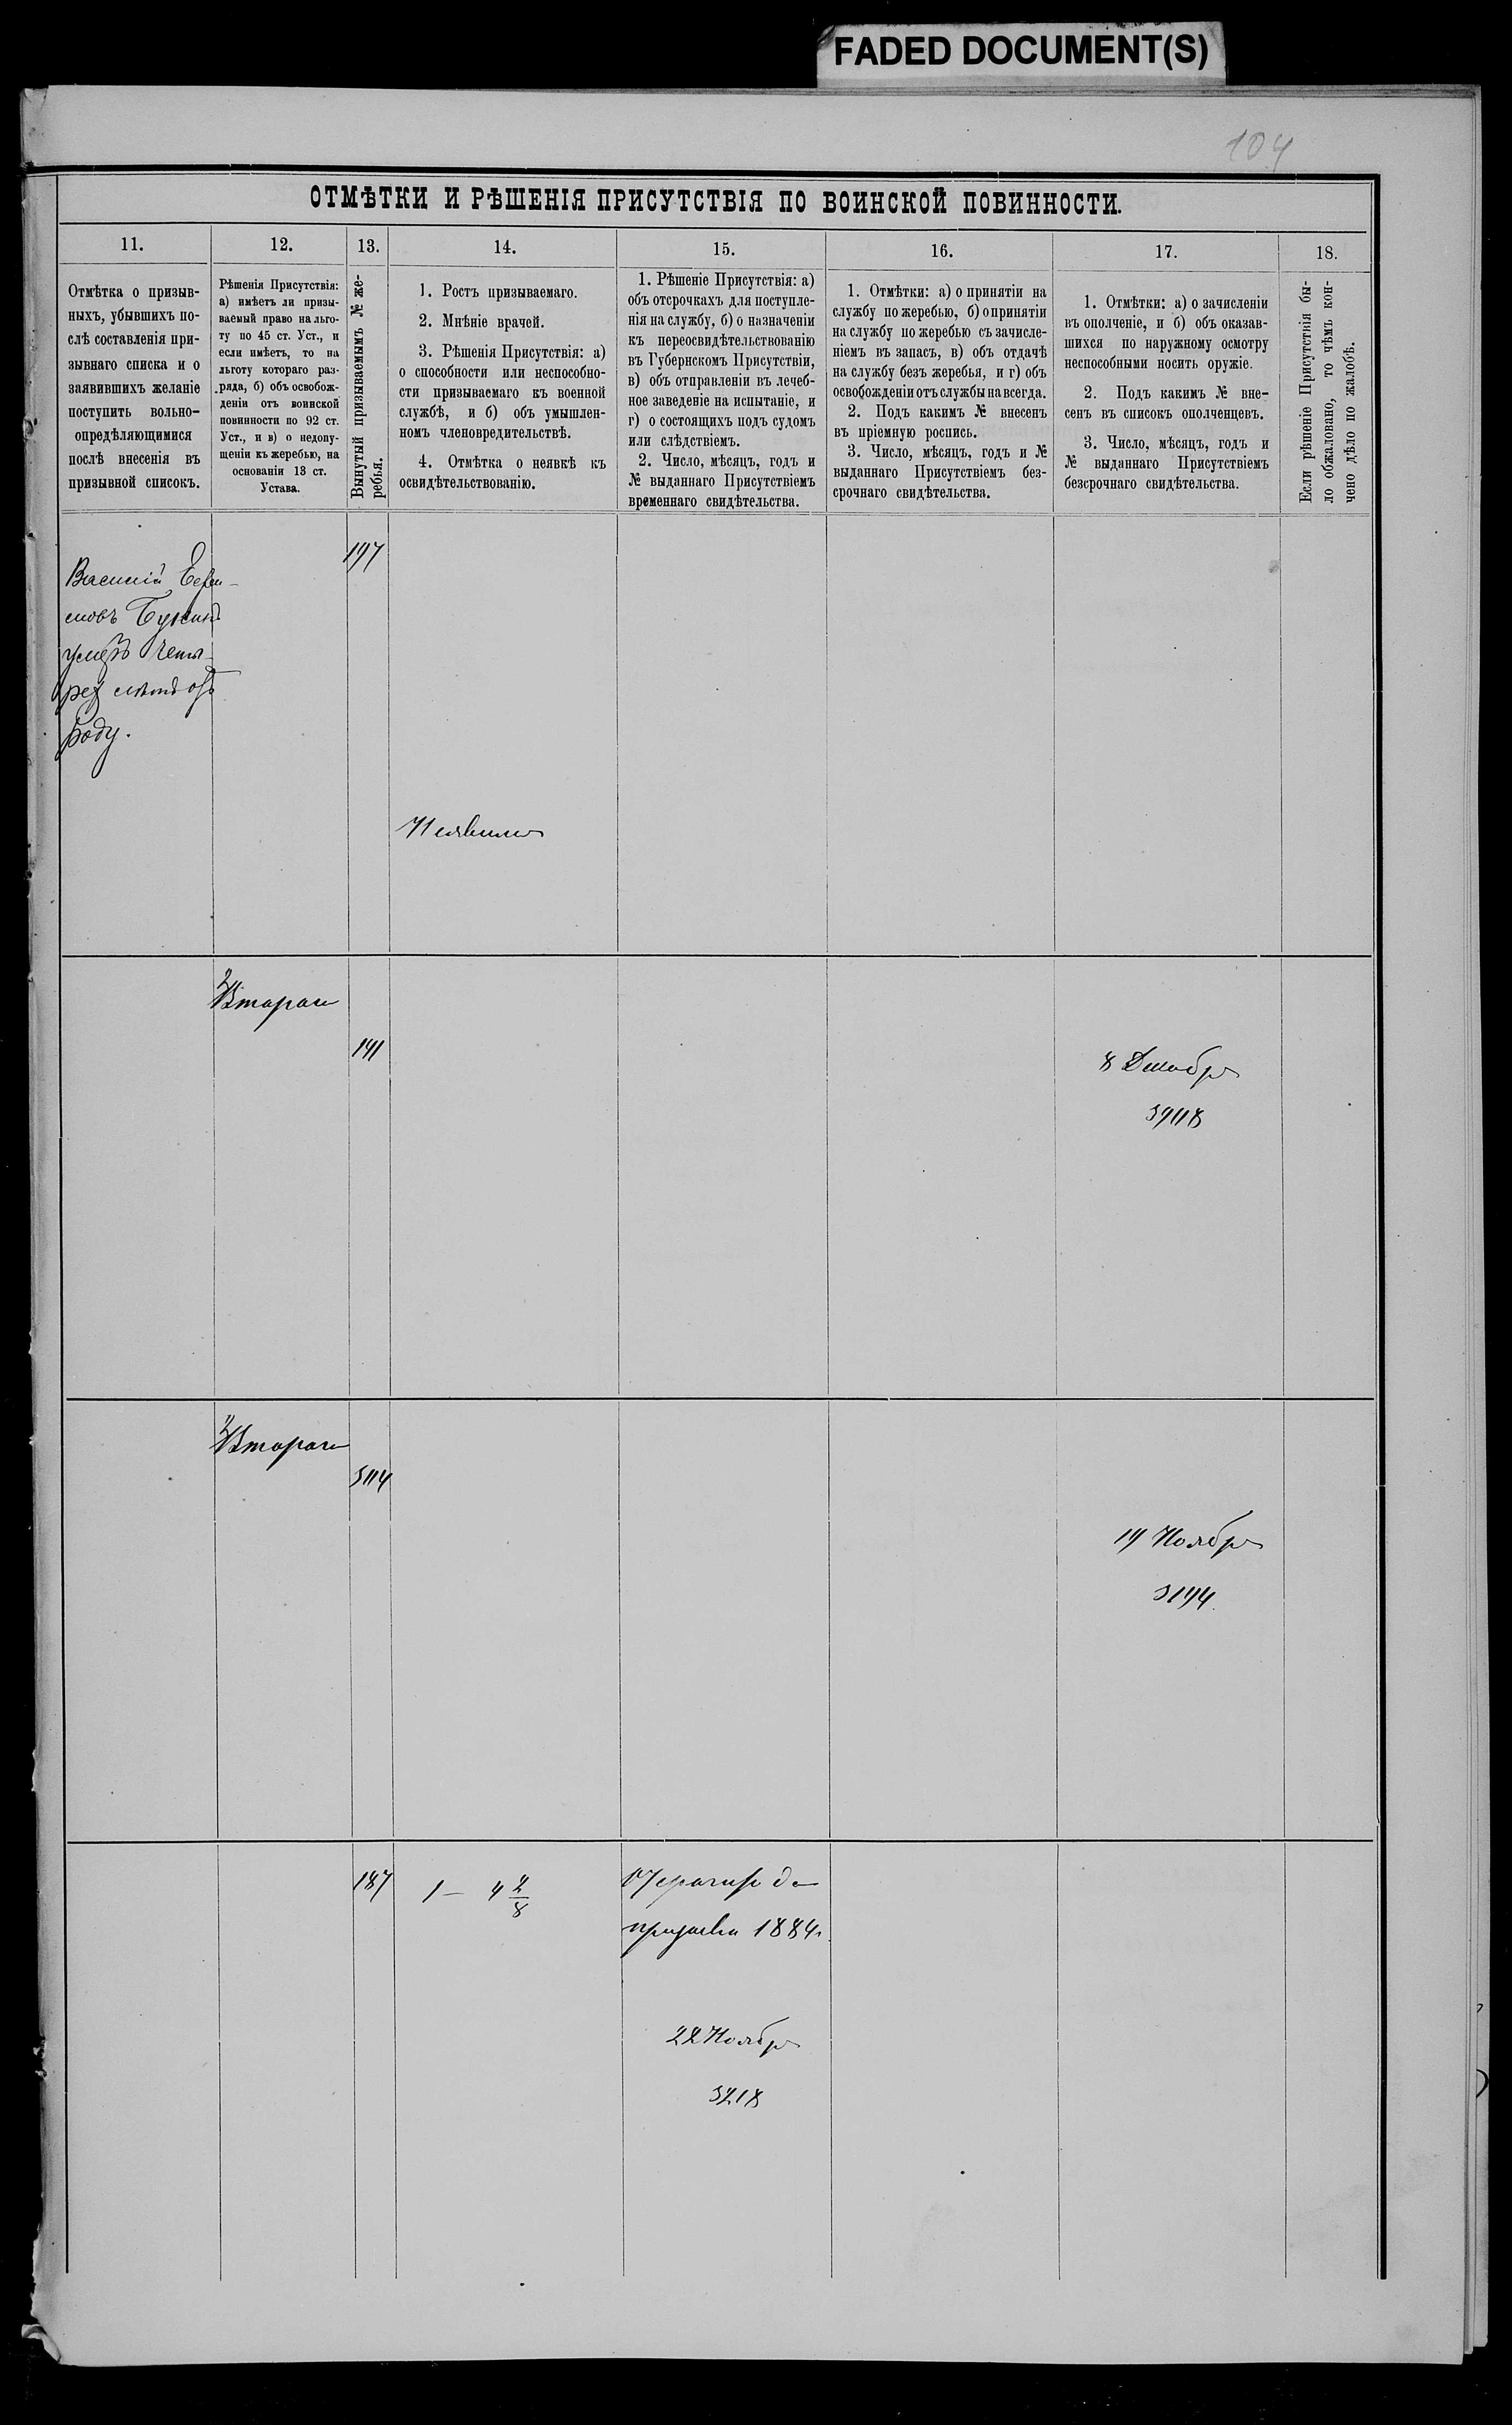 FADED DOCUMENT(S)
104
ОТМѢТКИ И РѢШЕНІЯ ПРИСУТСТВІЯ ПО ВОИНСКОЙ ПОВИННОСТИ.
11.
Отмѣтка о призыв-
ныхъ, убывшихъ по-
слѣ составленія при-
зывнаго списка и о
заявившихъ желаніе
поступить вольно-
опредѣляющимися
послѣ внесенія въ
призывной списокъ.
12.
Рѣшенія Присутствія:
а) имѣетъ ли призы-
ваемый право на льго-
ту по 45 ст. Уст., и
если имѣетъ, то на
льготу котораго раз-
ряда, б) объ освобож-
деніи отъ воинской
повинности по 92 ст.
Уст., и в) о недопу-
щеніи къ жеребью, на
основаніи 13 ст.
Устава.
13.
Вынутый призываемымъ № же-
ребья.
14.
1. Ростъ призываемаго.
2. Мнѣніе врачей.
3. Рѣшенія Присутствія: а)
о способности или неспособно-
сти призываемаго къ военной
службѣ, и б) объ умышлен-
номъ членовредительствѣ.
4. Отмѣтка о неявкѣ къ
освидѣтельствованію.
15.
1. Рѣшеніе Присутствія: а)
объ отсрочкахъ для поступле-
нія на службу, б) о назначеніи
къ переосвидѣтельствованію
въ Губернскомъ Присутствіи,
в) объ отправленіи въ лечеб-
ное заведеніе на испытаніе, и
г) о состоящихъ подъ судомъ
или слѣдствіемъ.
2. Число, мѣсяцъ, годъ и
№ выданнаго Присутствіемъ
временнаго свидѣтельства.
16.
1. Отмѣтки: а) о принятіи на
службу по жеребью, б) о принятіи
на службу по жеребью съ зачисле-
ніемъ въ запасъ, в) объ отдачѣ
на службу безъ жеребья, и г) объ
освобожденіи отъ службы на всегда.
2. Подъ какимъ № внесенъ
въ пріемную роспись.
3. Число, мѣсяцъ, годъ и №
выданнаго Присутствіемъ без-
срочнаго свидѣтельства.
17.
1. Отмѣтки: а) о зачисленіи
въ ополченіе, и б) объ оказав-
шихся по наружному осмотру
неспособными носить оружіе.
2. Подъ какимъ № вне-
сенъ въ списокъ ополченцевъ.
3. Число, мѣсяцъ, годъ и
№ выданнаго Присутствіемъ
безсрочнаго свидѣтельства.
18.
Если рѣшеніе Присутствія бы-
ло обжаловано, то чѣмъ кон-
чено дѣло по жалобѣ.
Василій
умеръ четы-
рех лѣтъ отъ
роду.
197
Неявился
Вторая
141
8 Декабря
Вторая
19 Ноября
187
1 — 4 2/8
Отсрочить до
призыва 1884 г.
22 Ноября
3218